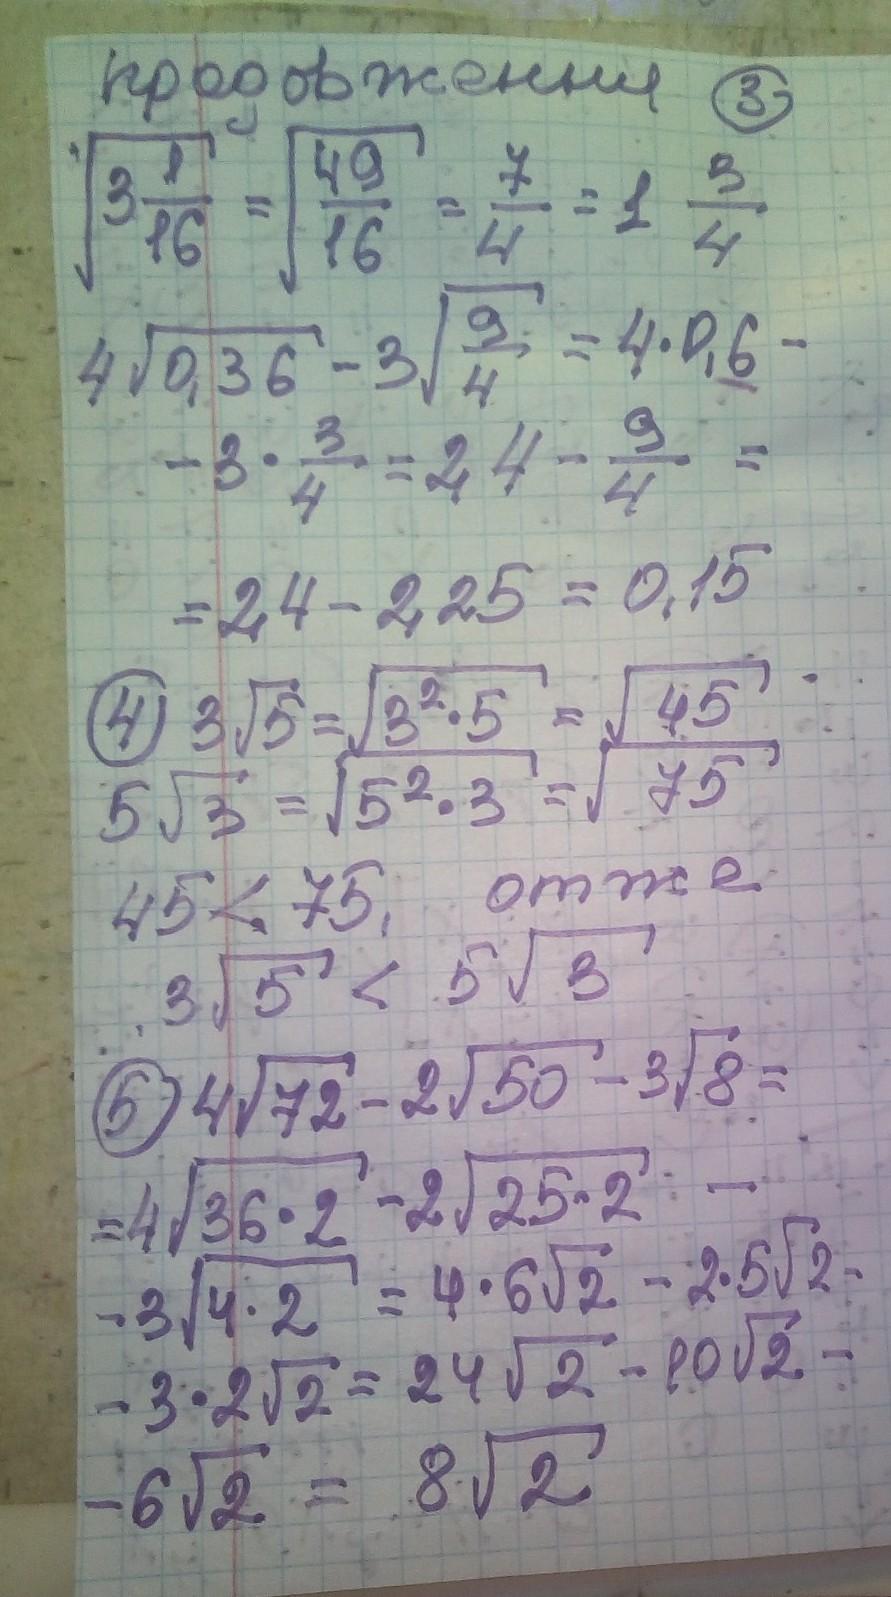 продовження ③
√(3 1/16) = √(49/16) = 7/4 = 1 3/4
4√0,36 - 3√(9/4) = 4·0,6 -
- 3 · 3/4 = 2,4 - 9/4 =
= 2,4 - 2,25 = 0,15
④ 3√5 = √(3²·5) = √45
5√3 = √(5²·3) = √75
45 < 75, отже
3√5 < 5√3
⑤ 4√72 - 2√50 - 3√8 =
= 4√(36·2) - 2√(25·2) -
- 3√(4·2) = 4·6√2 - 2·5√2 -
- 3·2√2 = 24√2 - 10√2 -
- 6√2 = 8√2